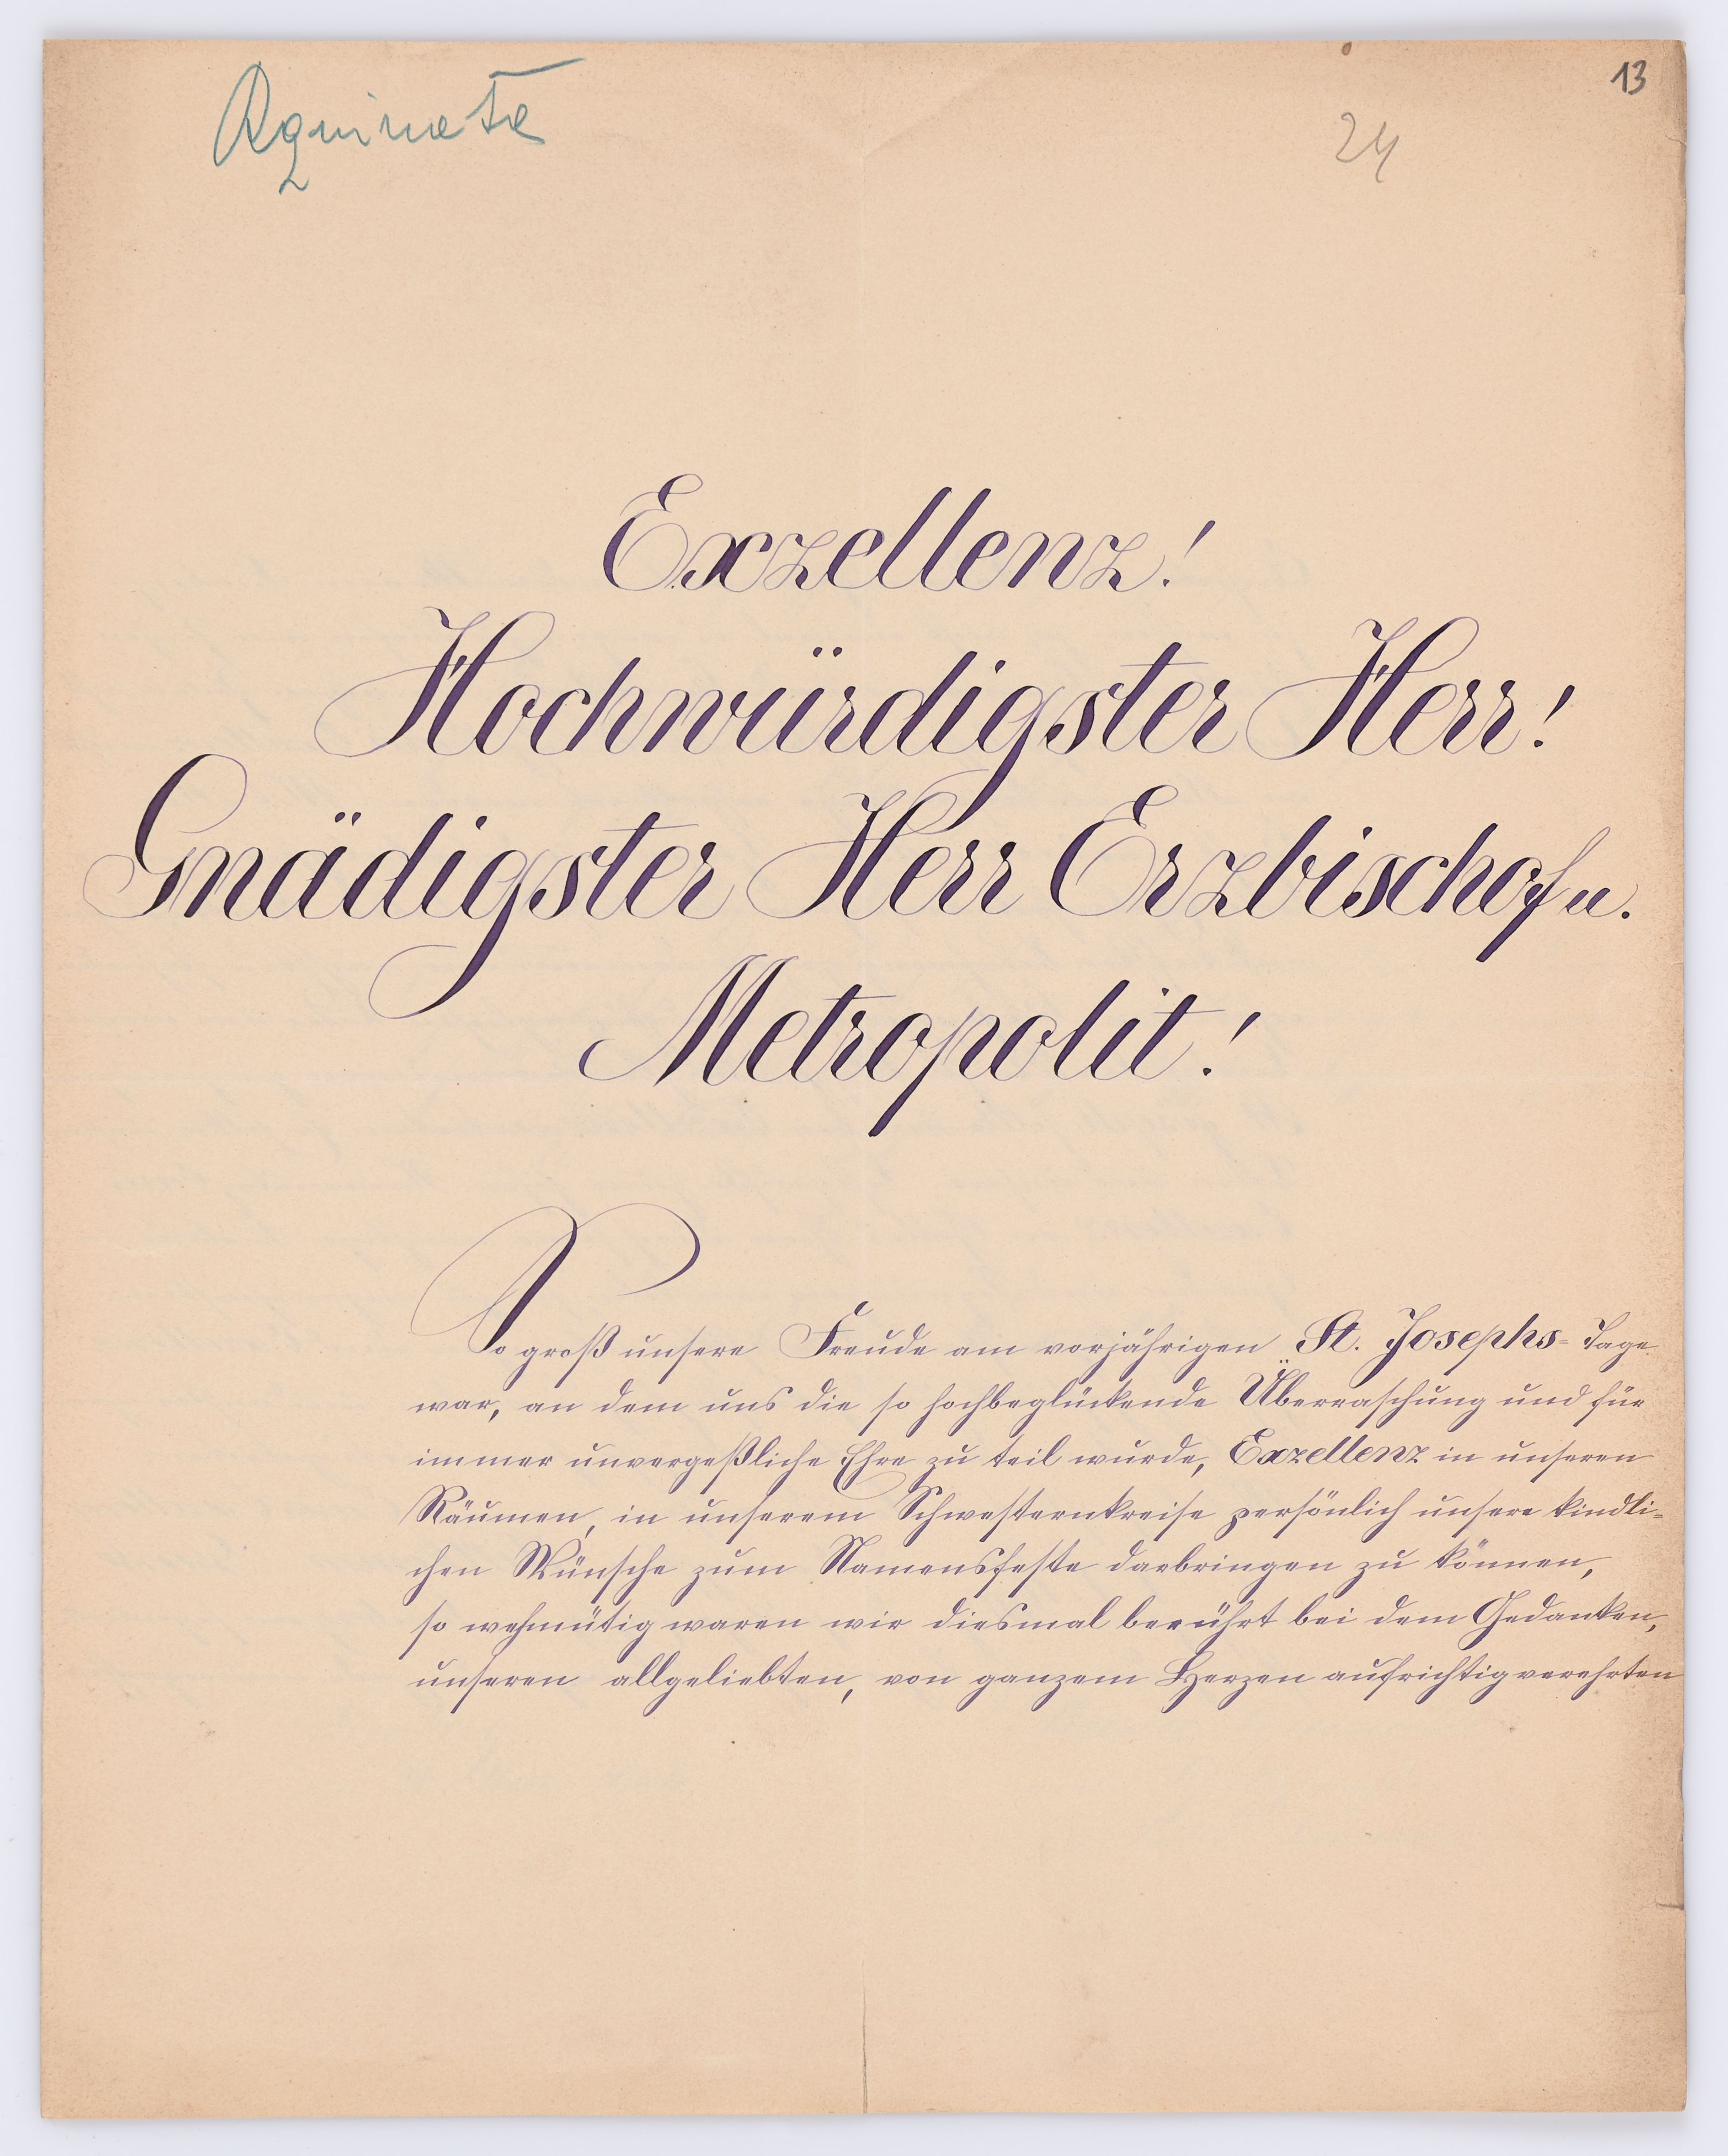 13
24
Exzellenz!
Hochwürdigster Herr!
Gnädigster Herr Erzbischof u.
Metropolit!
So groß unsere Freude am vorjährigen St. Josephs- Tage
war, an dem uns die so hochbeglückende Überraschung und für
immer unvergeßliche Ehre zu teil wurde, Exzellenz in unseren
Räumen, in unserem Schwesternkreise persönlich unsere kindli-
chen Wünsche zum Namensfeste darbringen zu können,
so wehmütig waren wir diesmal berührt bei dem Gedanken,
unseren allgeliebten, von ganzem Herzen aufrichtig verehrten